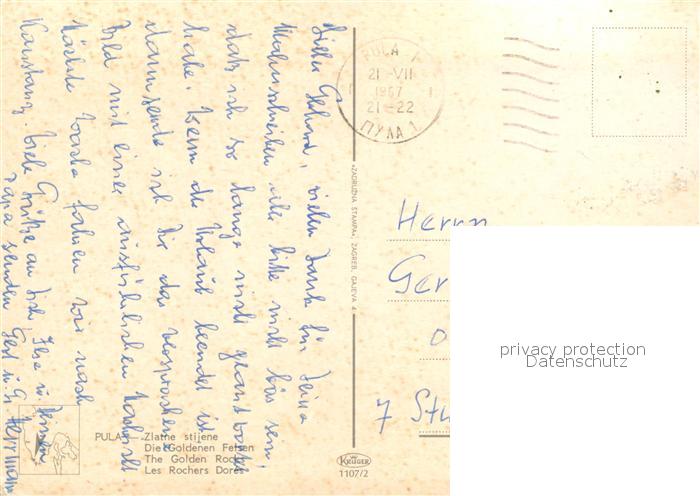 Lieber Gerhard, vielen Dank für Deine
Mahnschreiben bitte nicht bös sein,
daß ich so lange nicht geantwortet
habe. Wenn der Urlaub beendet ist,
dann sende ich Dir das versprochene
Bild mit einer ausführlichen Nachricht
Nächste Woche fahren wir nach
Konstanz. Viele Grüße an Dich, Ilse u.
senden Gert u.
PULA 1
21-VII
1967
21-22
ПУЛА 1
"ZADRUŽNA ŠTAMPA", ZAGREB, GAJEVA 4
Herrn
Ger
7 Stu
privacy protection
Datenschutz
PULA - Zlatne stijene
Die Goldenen Felsen
The Golden Rocks
Les Rochers Dorés
KRÜGER
1107/2